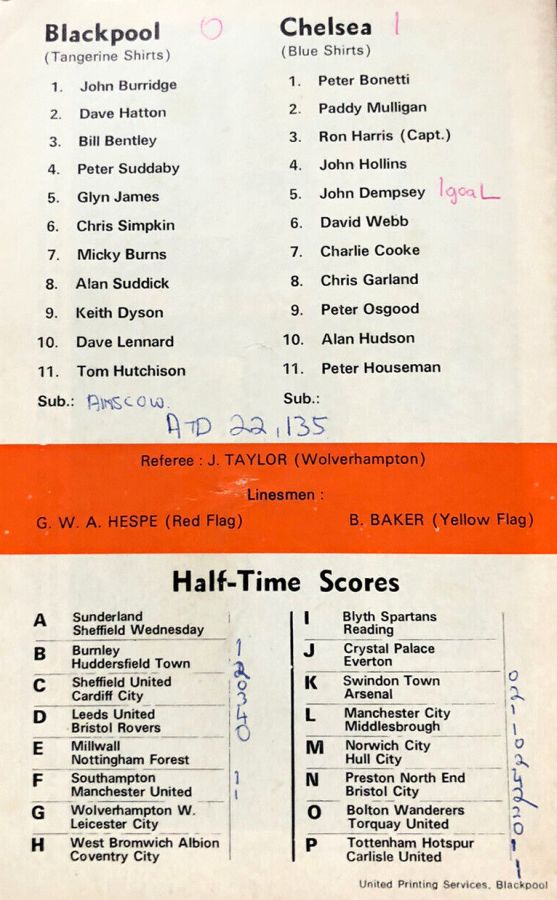 Blackpool 0
(Tangerine Shirts)
1. John Burridge
2. Dave Hatton
3. Bill Bentley
4. Peter Suddaby
5. Glyn James
6. Chris Simpkin
7. Micky Burns
8. Alan Suddick
9. Keith Dyson
10. Dave Lennard
11. Tom Hutchison
Sub.: AINSCOW.
Chelsea 1
(Blue Shirts)
1. Peter Bonetti
2. Paddy Mulligan
3. Ron Harris (Capt.)
4. John Hollins
5. John Dempsey 1 goaL
6. David Webb
7. Charlie Cooke
8. Chris Garland
9. Peter Osgood
10. Alan Hudson
11. Peter Houseman
Sub.:
ATD 22,135
Referee : J. TAYLOR (Wolverhampton)
Linesmen :
G. W. A. HESPE (Red Flag) B. BAKER (Yellow Flag)
Half-Time Scores
A Sunderland
Sheffield Wednesday
B Burnley 1
Huddersfield Town 2
C Sheffield United 0
Cardiff City 3
D Leeds United 4
Bristol Rovers 0
E Millwall
Nottingham Forest
F Southampton 1
Manchester United 1
G Wolverhampton W.
Leicester City
H West Bromwich Albion
Coventry City
I Blyth Spartans
Reading
J Crystal Palace
Everton
K Swindon Town 0
Arsenal 2
L Manchester City 1
Middlesbrough 1
M Norwich City 0
Hull City 2
N Preston North End
Bristol City 2
O Bolton Wanderers 2
Torquay United 0
P Tottenham Hotspur 1
Carlisle United 1
United Printing Services, Blackpool